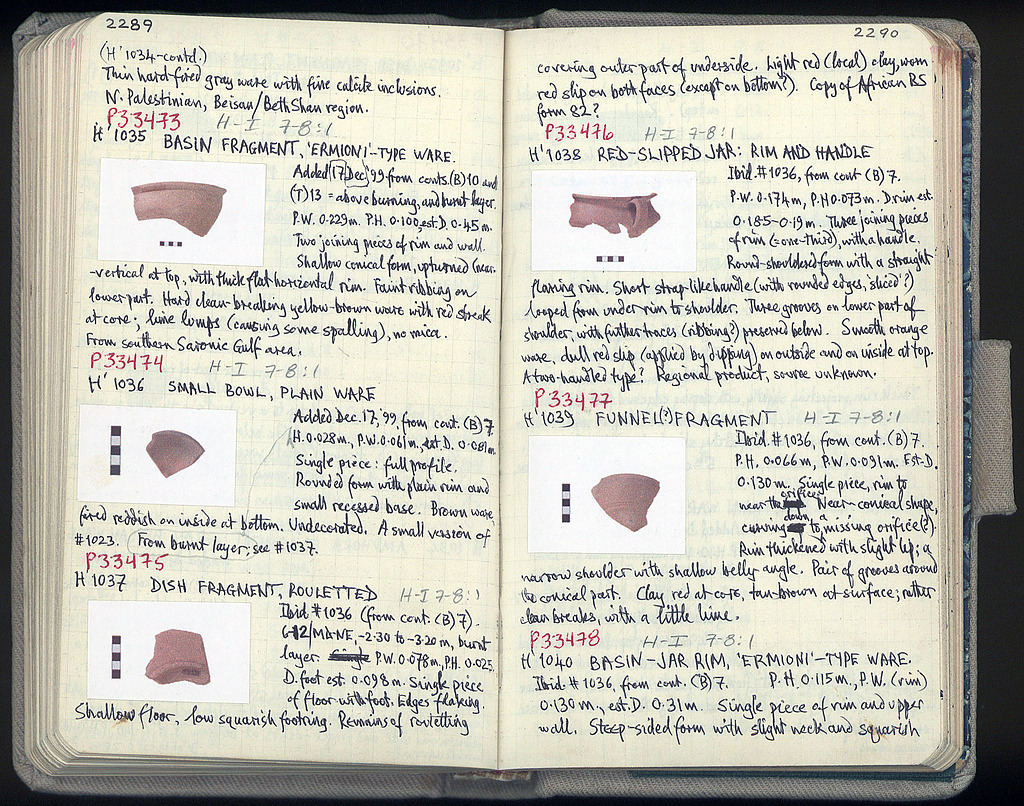 2289
(H'1034-contd.)
Thin hard-fired gray ware with fine calcite inclusions.
N. Palestinian, Beisan/BethShan region.
P33473 H-I 7-8:1
H'1035 BASIN FRAGMENT, 'ERMIONI'-TYPE WARE.
Added 17 Dec '99 from conts. (B) 10 and
(T) 13 = above burning, and burnt layer.
P.W. 0.229m. P.H. 0.100, est. D. 0.45m.
Two joining pieces of rim and wall.
Shallow conical form, upturned (near-
-vertical at top, with thick flat horizontal rim. Faint ribbing on
lower part. Hard clean-breaking yellow-brown ware with red streak
at core; lime lumps (causing some spalling), no mica.
From southern Saronic Gulf area.
P33474 H-I 7-8:1
H'1036 SMALL BOWL, PLAIN WARE
Added Dec. 17, '99, from cont. (B) 7.
H. 0.028m, P.W. 0.061m, est. D. 0.081m.
Single piece: full profile.
Rounded form with plain rim and
small recessed base. Brown ware,
fired reddish on inside at bottom. Undecorated. A small version of
#1023. From burnt layer; see #1037.
P33475
H'1037 DISH FRAGMENT, ROULETTED H-I 7-8:1
Ibid #1036 (from cont. (B) 7).
6-12/MA-NE, -2.30 to -3.20m, burnt
layer. P.W. 0.078m, P.H. 0.025,
D. foot est. 0.098m. Single piece
of floor with foot. Edges flaking.
Shallow floor, low squarish footring. Remains of rouletting
2290
covering outer part of underside. Light red (local) clay, worn
red slip on both faces (except on bottom?). Copy of African RS
form 82?
P33476 H-I 7-8:1
H'1038 RED-SLIPPED JAR: RIM AND HANDLE
Ibid. #1036, from cont (B) 7.
P.W. 0.174m, P.H 0.073m. D rim est.
0.185-0.19m. Three joining pieces
of rim (=one-third), with a handle.
Round-shouldered form with a straight
flaring rim. Short strap-like handle (with rounded edges, sliced?)
looped from under rim to shoulder. Three grooves on lower part of
shoulder, with further traces (ribbing?) preserved below. Smooth orange
ware, dull red slip (applied by dipping) on outside and on inside at top.
A two-handled type? Regional product, source unknown.
P33477
H'1039 FUNNEL(?) FRAGMENT H-I 7-8:1
Ibid. #1036, from cont. (B) 7.
P.H. 0.066m, P.W. 0.091m. Est. D.
0.130m. Single piece, rim to
near the orifice. Near-conical shape,
curving down, to a missing orifice(?).
Rim thickened with slight lip; a
narrow shoulder with shallow belly angle. Pair of grooves around
the conical part. Clay red at core, tan-brown at surface; rather
clean breaks, with a little lime.
P33478 H-I 7-8:1
H'1040 BASIN-JAR RIM, 'ERMIONI'-TYPE WARE.
Ibid. #1036, from cont. (B) 7. P.H. 0.115m, P.W. (rim)
0.130m, est. D. 0.31m. Single piece of rim and upper
wall. Steep-sided form with slight neck and squarish